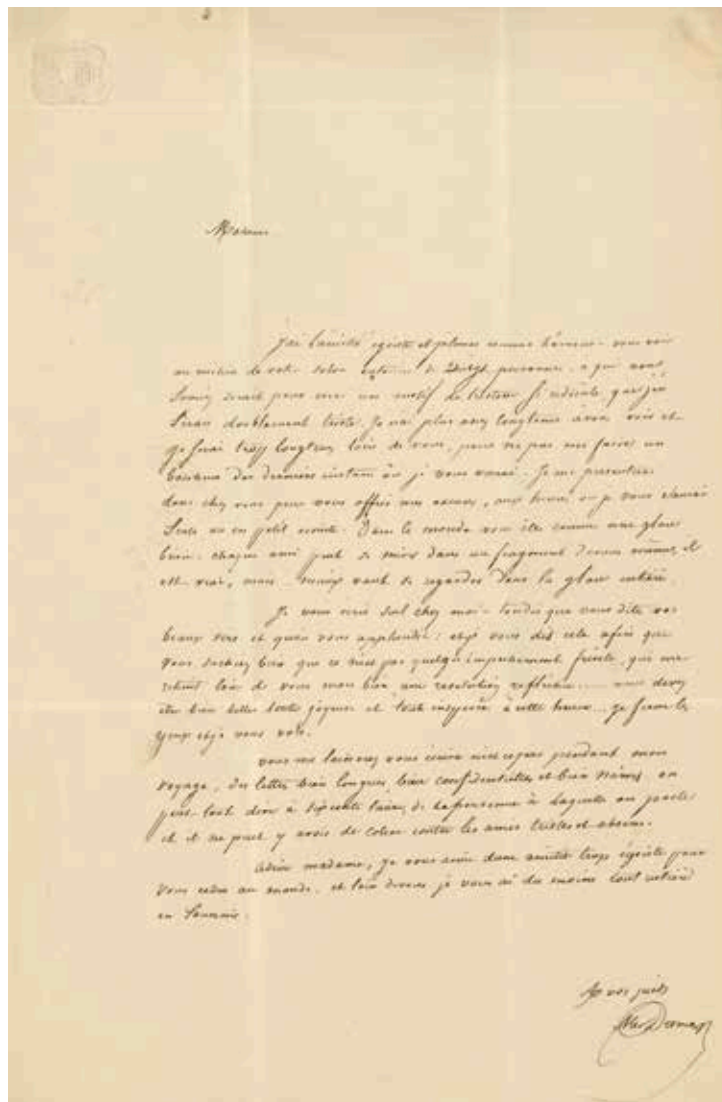 Madame
j'ai l'amitié égoiste et jalouse comme l'amour - vous voir
au milieu de votre salon de vingt personnes
serait pour moi un motif de tristesse si ridicule que j'en
serais doublement triste. Je n'ai plus assez longtems à vous voir et
je serai trop longtems loin de vous, pour ne pas me faire un
bonheur des derniers instans où je vous verrai. Je me presenterai
donc chez vous pour vous offrir mes excuses, aux heures où je vous
seule ou en petit comité. Dans le monde vous êtes comme une glace
chaque ami peut se mirer dans un fragment de vous même, il
est vrai, mais mieux vaut se regarder dans la glace entière.
Je vous verrai seul chez moi - tandis que vous dites vos
beaux vers et qu'on vous applaudit: et je vous dis cela afin que
vous sachiez bien que ce n'est pas quelqu'empechement frivole, qui me
retient loin de vous mais bien une resolution reflechie.... vous devez
être bien belle toute joyeuse et toute inspirée à cette heure... je ferme les
yeux et je vous vois.
vous me laisserez vous écrire n'est ce pas pendant mon
voyage, des lettres bien longues, bien confidentielles et bien on
peut tout dire à lieues, de la personne à laquelle on parle
et il ne peut y avoir de colère contre les ames tristes et absentes.
Adieu madame, je vous aime d'une amitié trop égoiste pour
vous ceder au monde. et loin de vous je vous ai du moins tout entière
en souvenir.
à vos pieds
Alex Dumas